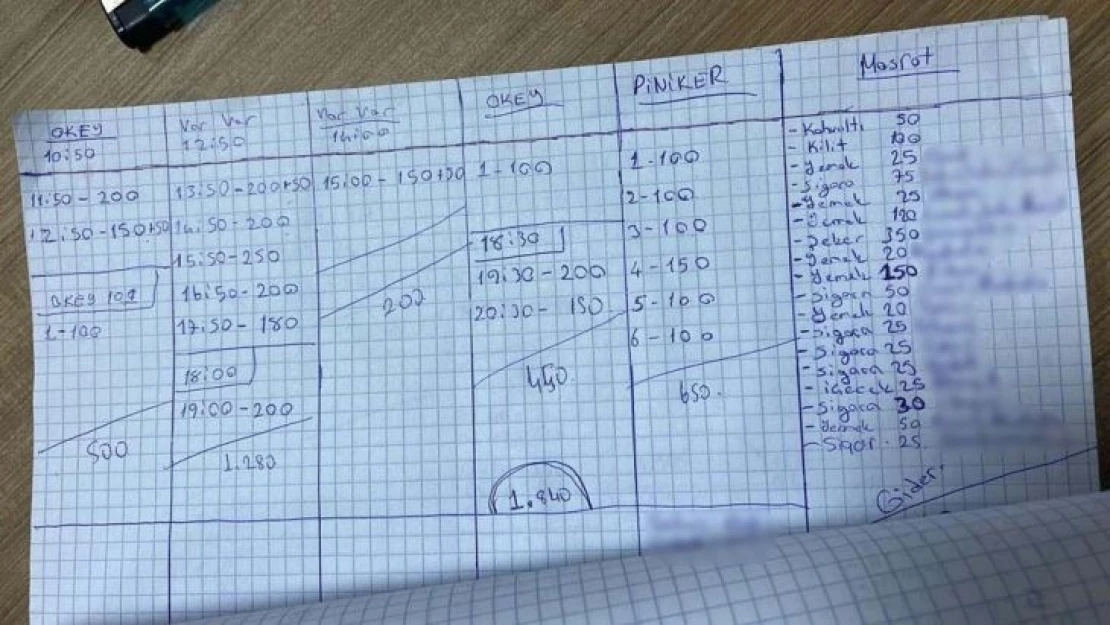 OKEY
10:50
11:50-200
12:50-150+50
OKEY 101
1-100
500
Var Var
12:50
13:50-200+50
14:50-200
15:50-250
16:50-200
17:50-180
18:00
19:00-200
1.280
Var Var
14:00
15:00-150+50
200
OKEY
1-100
18:30
19:30-200
20:30-150
450
1.840
PİNİKER
1-100
2-100
3-100
4-150
5-100
6-100
650.
Masraf
-Kahvaltı 50
-Kilit 100
-Yemek 25
-Sigara 75
-Yemek 25
-Yemek 120
-Şeker 350
-Yemek 20
-Yemek 150
-Sigara 50
-Yemek 20
-Sigara 25
-Sigara 25
-Sigara 25
-içecek 25
-Sigara 30
-Yemek 50
-Sigar. 25
Gider